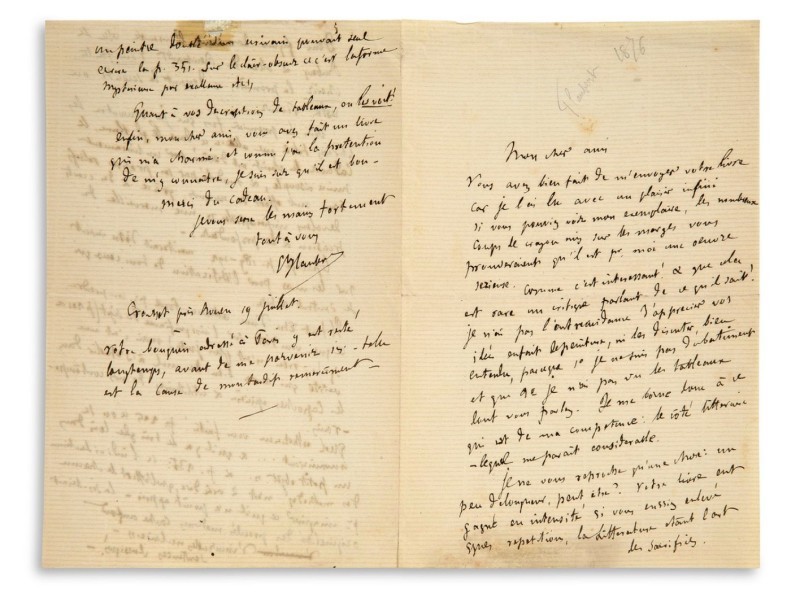 Flaubert 1876
Mon cher ami
Vous avez bien fait de m'envoyer votre livre
car je l'ai lu avec un plaisir infini
Si vous pouviez voir mon exemplaire, les nombreux
coups de crayon mis sur les marges vous
prouveraient qu'il est pr. moi une oeuvre
serieuse. Comme c'est interessant! & que cela
est rare un critique parlant de ce qu'il sait!
Je n'ai pas l'outrecuidance d'apprecier vos
idées en fait de peinture, ni les discuter, bien
entendu, parceque 1° je ne suis pas du batiment
et que 2e je n'ai pas vu les tableaux
dont vous parlez. Je me borne donc à ce
qui est de ma competence: le côté litteraire
- lequel me parait considerable.
Je ne vous reproche qu'une chose: un
peu de longueur, peut etre? Votre livre eut
gagné en intensité si vous eussiez enlevé
qques repetitions, la litterature etant l'art
des sacrifices.
un peintre doublé d'un ecrivain pouvait seul
ecrire la p. 351. Sur le clair-obscur ce c'est la forme
mysterieuse par excellence etc,
Quant à vos descriptions de tableaux, on les voit!
enfin, mon cher ami, vous avez fait un livre
qui m'a charmé. et comme j'ai la pretention
de m'y connaître, je suis sur qu'il est bon -
merci du cadeau.
je vous serre les mains fortement
tout à vous
G Flaubert
Croisset près Rouen 19 juillet.
Votre bouquin adressé à Paris y est resté
longtemps, avant de me parvenir ici - telle
est la cause de mon tardif remerciement -